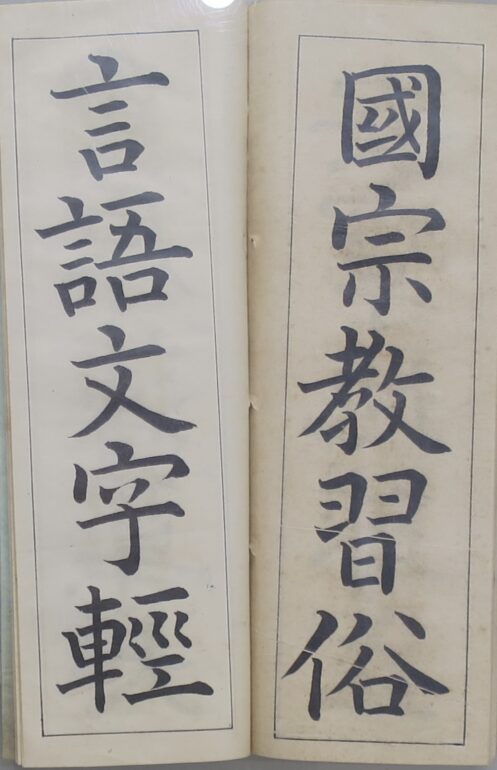 國宗教習俗
言語文字輕